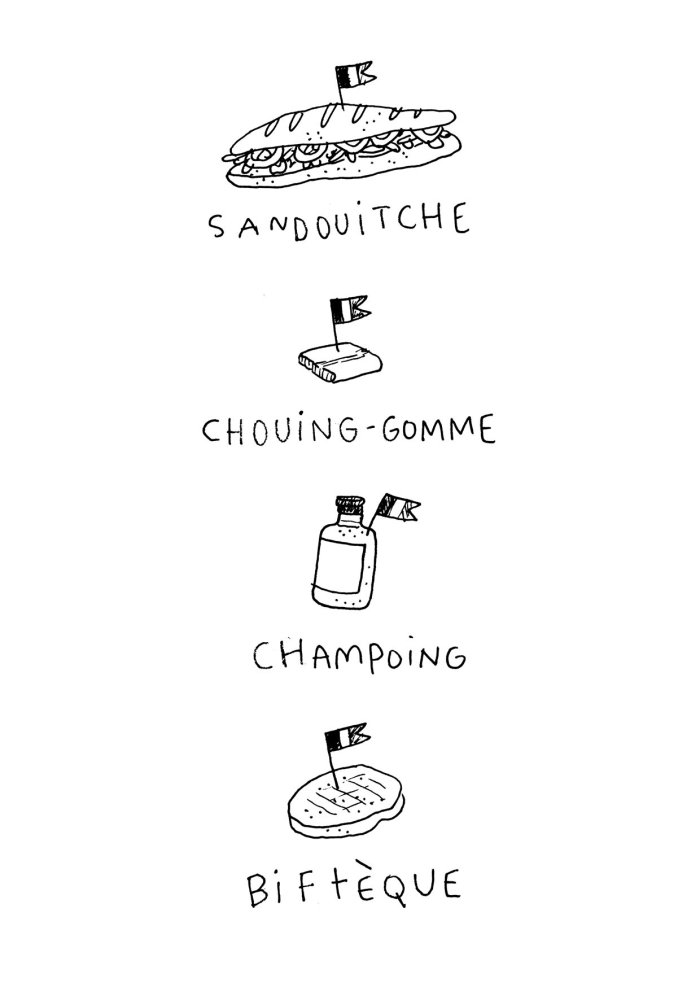 SANDOUiTCHE
CHOUiNG-GOMME
CHAMPOiNG
BiFtÈQUE